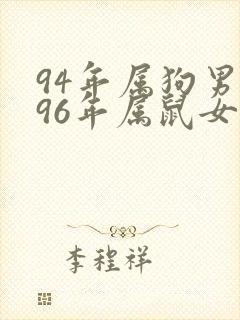 94年属狗男
96年属鼠女
李程祥